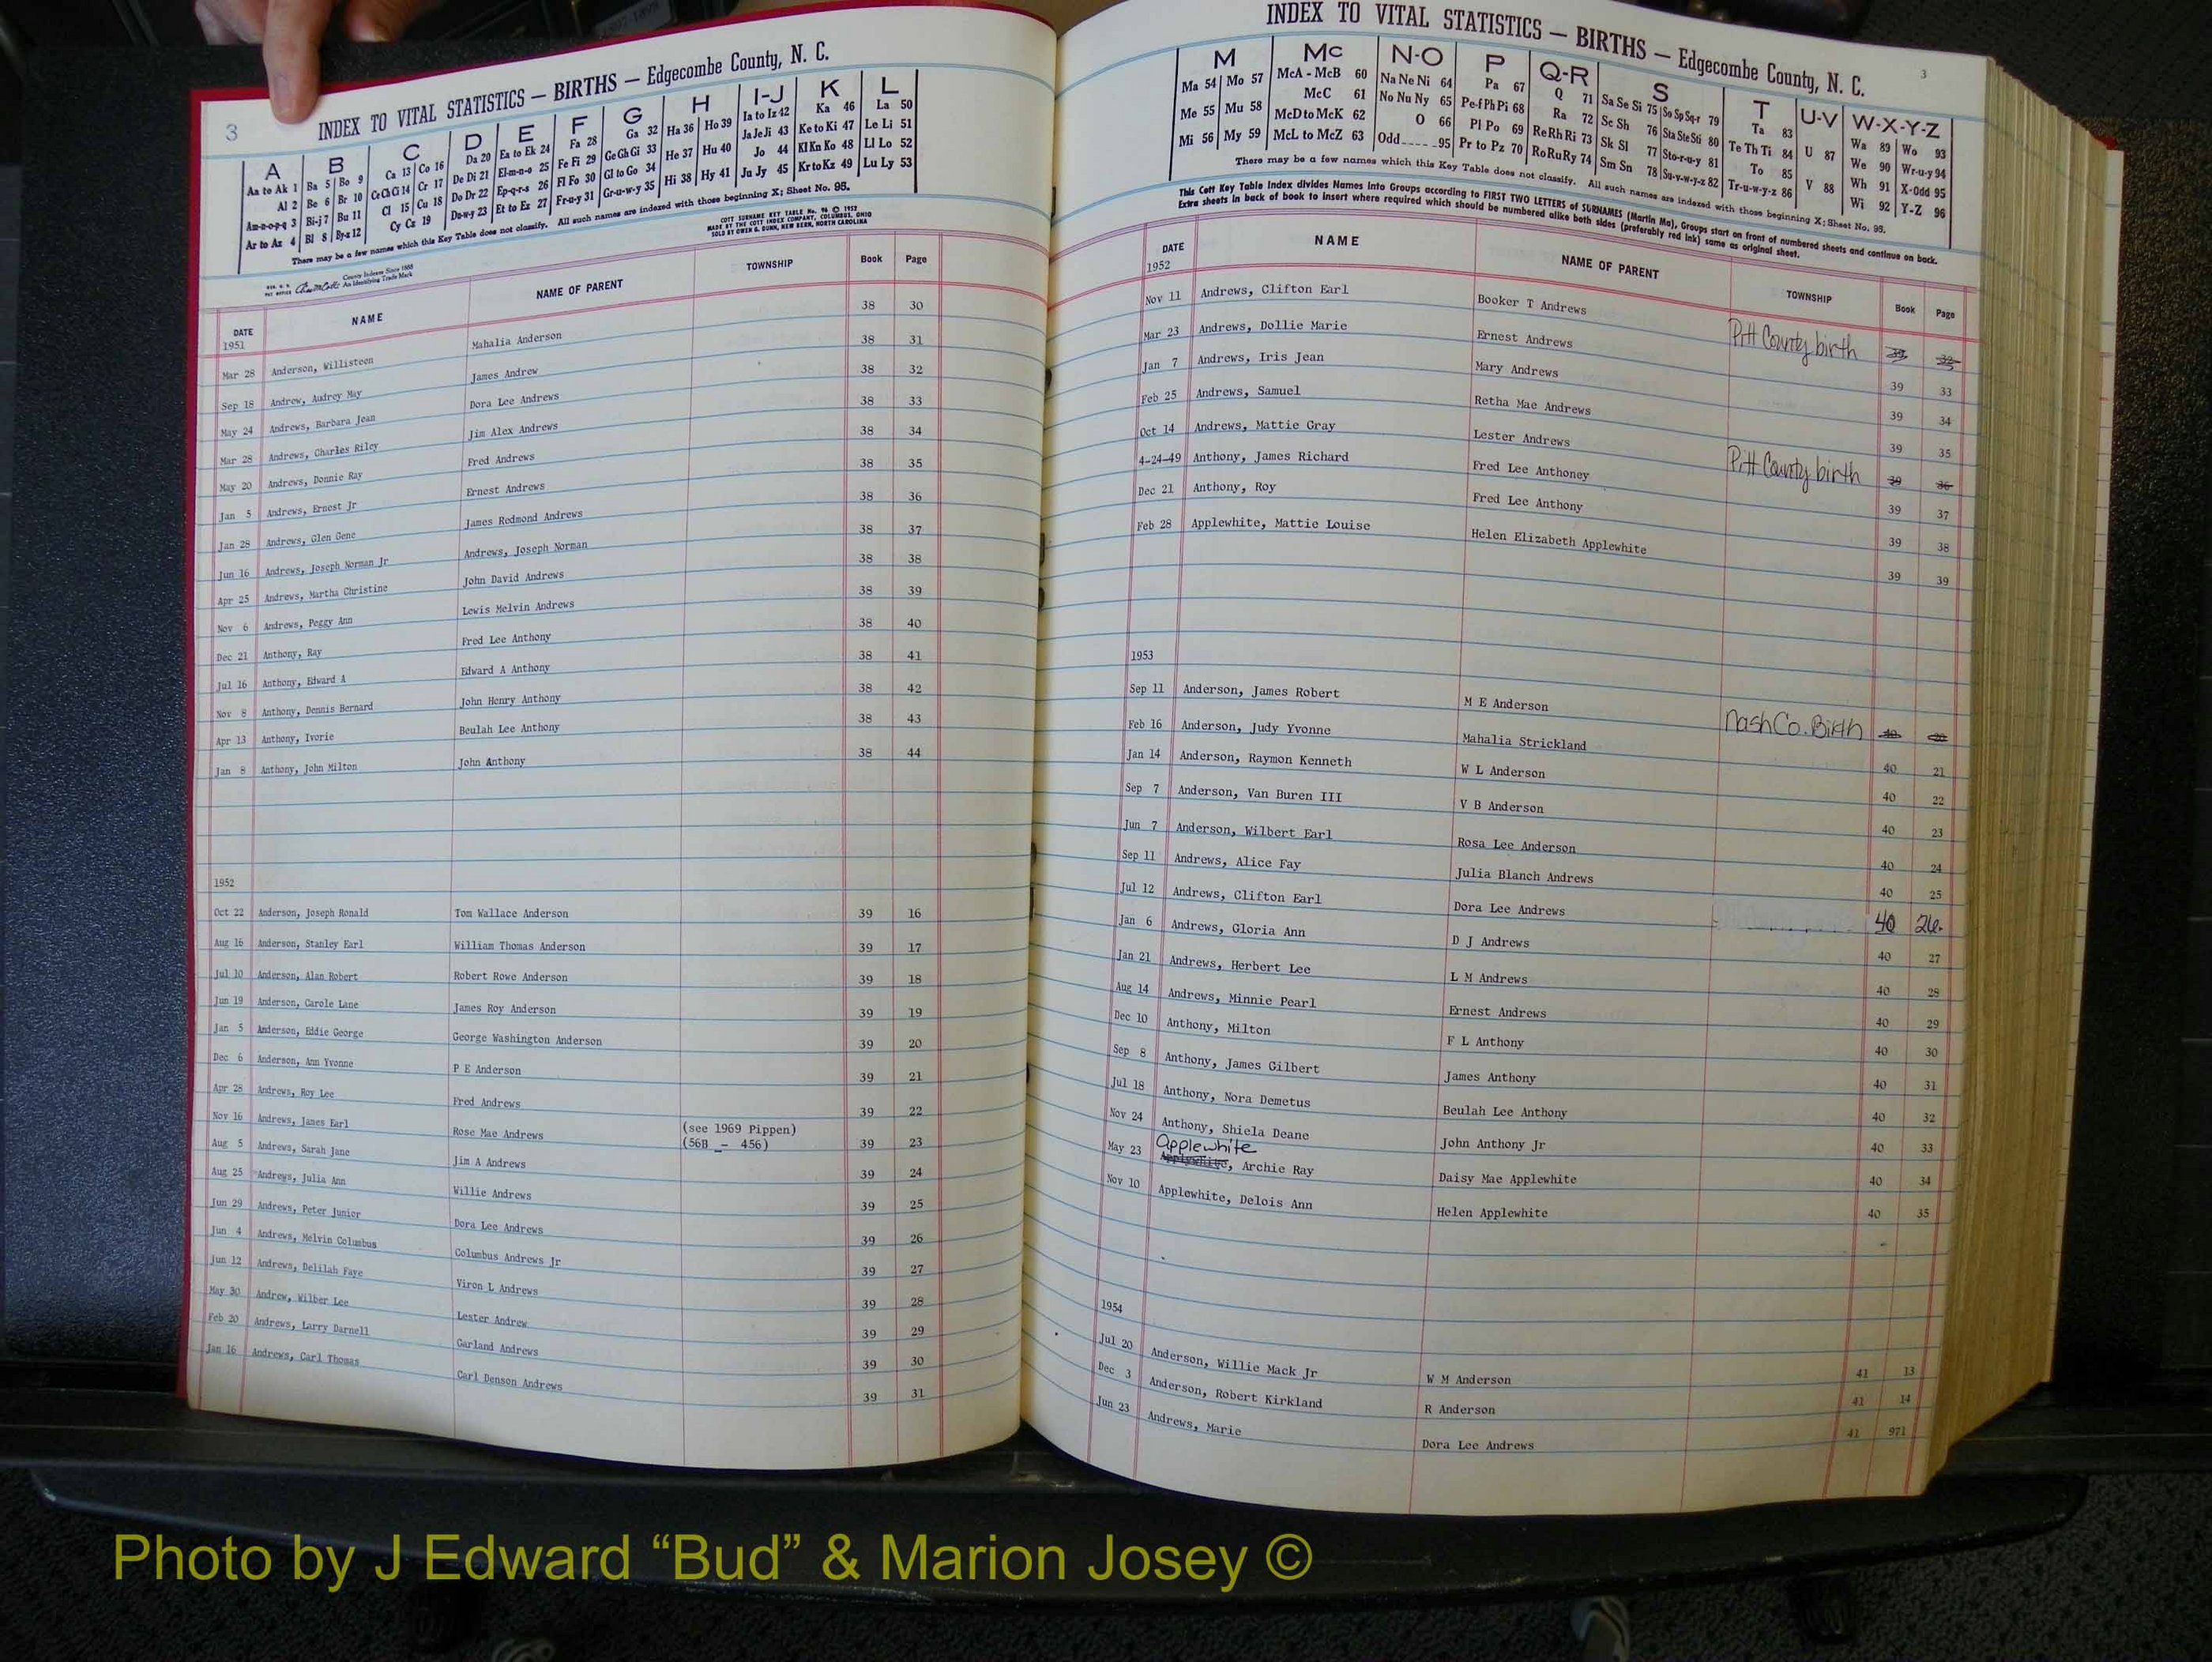 3
INDEX TO VITAL STATISTICS — BIRTHS — Edgecombe County, N. C.
A B C D E F G H I-J K L
Aa to Ak 1 Ba 5 Bo 9 Ca 13 Co 16 Da 20 Ea to Ek 24 Fa 28 Ga 32 Ha 36 Ho 39 Ia to Iz 42 Ka 46 La 50
Al 2 Be 6 Br 10 Ce Ch Ci 14 Cr 17 De Di 21 El-m-n-o 25 Fe Fi 29 Ge Gh Gi 33 He 37 Hu 40 Ja Je Ji 43 Ke to Ki 47 Le Li 51
Am-n-o-p-q 3 Bi-j 7 Bu 11 Cl 15 Cu 18 Do Dr 22 Ep-q-r-s 26 Fl Fo 30 Gl to Go 34 Hi 38 Hy 41 Jo 44 Kl Kn Ko 48 Ll Lo 52
Ar to Az 4 Bl 8 By-z 12 Cy Cz 19 Du-w-y 23 Et to Ez 27 Fr-u-y 31 Gr-u-w-y 35 Ju Jy 45 Kr to Kz 49 Lu Ly 53
There may be a few names which this Key Table does not classify. All such names are indexed with those beginning X; Sheet No. 95.
COTT SURNAME KEY TABLE No. 96 © 1952
MADE BY THE COTT INDEX COMPANY, COLUMBUS, OHIO
SOLD BY OWEN G. DUNN, NEW BERN, NORTH CAROLINA
County Indexes Since 1888
An Identifying Trade Mark
DATE NAME NAME OF PARENT TOWNSHIP Book Page
1951
Mar 28 Anderson, Willisteen Mahalia Anderson 38 30
Sep 18 Andrew, Audrey May James Andrew 38 31
May 24 Andrews, Barbara Jean Dora Lee Andrews 38 32
Mar 28 Andrews, Charles Riley Jim Alex Andrews 38 33
May 20 Andrews, Donnie Ray Fred Andrews 38 34
Jan 5 Andrews, Ernest Jr Ernest Andrews 38 35
Jan 28 Andrews, Glen Gene James Redmond Andrews 38 36
Jun 16 Andrews, Joseph Norman Jr Andrews, Joseph Norman 38 37
Apr 25 Andrews, Martha Christine John David Andrews 38 38
Nov 6 Andrews, Peggy Ann Lewis Melvin Andrews 38 39
Dec 21 Anthony, Ray Fred Lee Anthony 38 40
Jul 16 Anthony, Edward A Edward A Anthony 38 41
Nov 8 Anthony, Dennis Bernard John Henry Anthony 38 42
Apr 13 Anthony, Ivorie Beulah Lee Anthony 38 43
Jan 8 Anthony, John Milton John Anthony 38 44
1952
Oct 22 Anderson, Joseph Ronald Tom Wallace Anderson 39 16
Aug 16 Anderson, Stanley Earl William Thomas Anderson 39 17
Jul 10 Anderson, Alan Robert Robert Rowe Anderson 39 18
Jun 19 Anderson, Carole Lane James Roy Anderson 39 19
Jan 5 Anderson, Eddie George George Washington Anderson 39 20
Dec 6 Anderson, Ann Yvonne P E Anderson 39 21
Apr 28 Andrews, Roy Lee Fred Andrews 39 22
Nov 16 Andrews, James Earl Rose Mae Andrews (see 1969 Pippen) (56B – 456) 39 23
Aug 5 Andrews, Sarah Jane Jim A Andrews 39 24
Aug 25 Andrews, Julia Ann Willie Andrews 39 25
Jun 29 Andrews, Peter Junior Dora Lee Andrews 39 26
Jun 4 Andrews, Melvin Columbus Columbus Andrews Jr 39 27
Jun 12 Andrews, Delilah Faye Viron L Andrews 39 28
May 30 Andrew, Wilber Lee Lester Andrew 39 29
Feb 20 Andrews, Larry Darnell Garland Andrews 39 30
Jan 16 Andrews, Carl Thomas Carl Denson Andrews 39 31
INDEX TO VITAL STATISTICS — BIRTHS — Edgecombe County, N. C. 3
M Mc N-O P Q-R S T U-V W-X-Y-Z
Ma 54 Mo 57 McA - McB 60 Na Ne Ni 64 Pa 67 Q 71 Sa Se Si 75 So Sp Sq-r 79 Ta 83 U 87 Wa 89 Wo 93
Me 55 Mu 58 McC 61 No Nu Ny 65 Pe-f Ph Pi 68 Ra 72 Sc Sh 76 Sta Ste Sti 80 Te Th Ti 84 V 88 We 90 Wr-u-y 94
Mi 56 My 59 McD to McK 62 O 66 Pl Po 69 Re Rh Ri 73 Sk Sl 77 Sto-r-u-y 81 To 85 Wh 91 X-Odd 95
McL to McZ 63 Odd 95 Pr to Pz 70 Ro Ru Ry 74 Sm Sn 78 Su-v-w-y-z 82 Tr-u-w-y-z 86 Wi 92 Y-Z 96
There may be a few names which this Key Table does not classify. All such names are indexed with those beginning X; Sheet No. 95.
This Cott Key Table Index divides Names into Groups according to FIRST TWO LETTERS of SURNAMES (Martin Ma), Groups start on front of numbered sheets and continue on back.
Extra sheets in back of book to insert where required which should be numbered alike both sides (preferably red ink) same as original sheet.
DATE NAME NAME OF PARENT TOWNSHIP Book Page
1952
Nov 11 Andrews, Clifton Earl Booker T Andrews Pitt County birth 39 32
Mar 23 Andrews, Dollie Marie Ernest Andrews 39 33
Jan 7 Andrews, Iris Jean Mary Andrews 39 34
Feb 25 Andrews, Samuel Retha Mae Andrews 39 35
Oct 14 Andrews, Mattie Gray Lester Andrews Pitt County birth 39 36
4-24-49 Anthony, James Richard Fred Lee Anthoney 39 37
Dec 21 Anthony, Roy Fred Lee Anthony 39 38
Feb 28 Applewhite, Mattie Louise Helen Elizabeth Applewhite 39 39
1953
Sep 11 Anderson, James Robert M E Anderson Nash Co. Birth
Feb 16 Anderson, Judy Yvonne Mahalia Strickland 40 21
Jan 14 Anderson, Raymon Kenneth W L Anderson 40 22
Sep 7 Anderson, Van Buren III V B Anderson 40 23
Jun 7 Anderson, Wilbert Earl Rosa Lee Anderson 40 24
Sep 11 Andrews, Alice Fay Julia Blanch Andrews 40 25
Jul 12 Andrews, Clifton Earl Dora Lee Andrews 40 26
Jan 6 Andrews, Gloria Ann D J Andrews 40 27
Jan 21 Andrews, Herbert Lee L M Andrews 40 28
Aug 14 Andrews, Minnie Pearl Ernest Andrews 40 29
Dec 10 Anthony, Milton F L Anthony 40 30
Sep 8 Anthony, James Gilbert James Anthony 40 31
Jul 18 Anthony, Nora Demetus Beulah Lee Anthony 40 32
Nov 24 Anthony, Shiela Deane John Anthony Jr 40 33
Applewhite
May 23 , Archie Ray Daisy Mae Applewhite 40 34
Nov 10 Applewhite, Delois Ann Helen Applewhite 40 35
1954
Jul 20 Anderson, Willie Mack Jr W M Anderson 41 13
Dec 3 Anderson, Robert Kirkland R Anderson 41 14
Jun 23 Andrews, Marie Dora Lee Andrews 41 971
Photo by J Edward “Bud” & Marion Josey ©